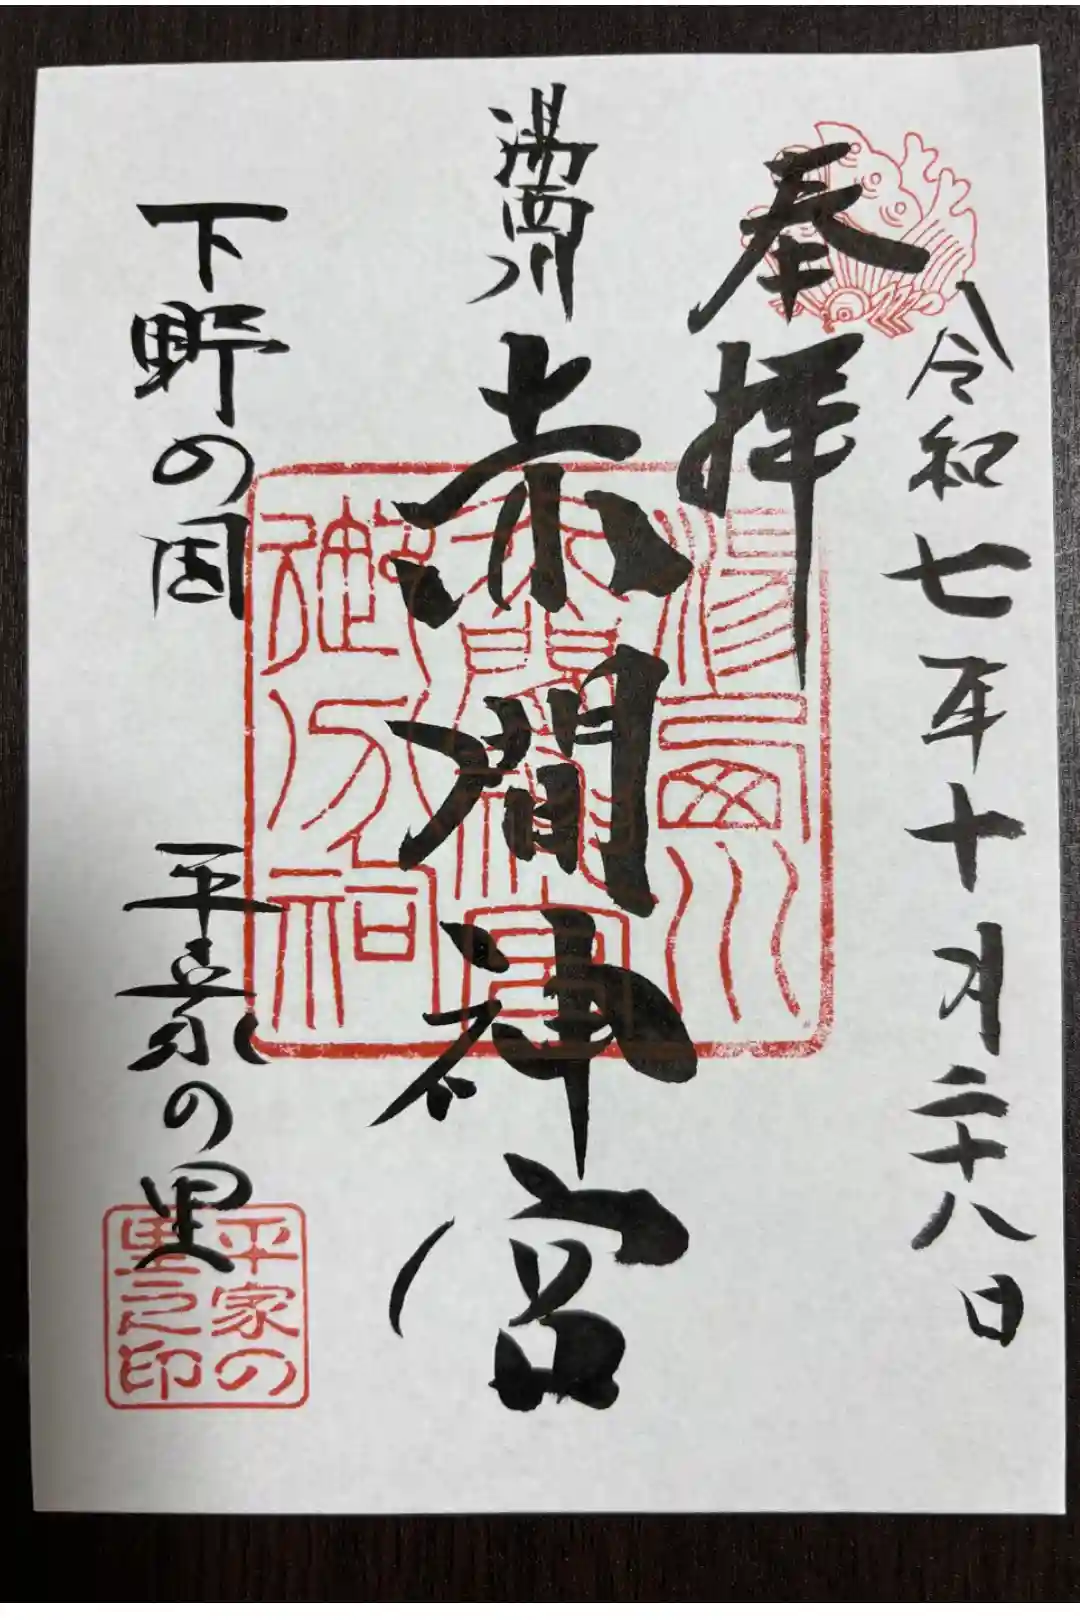 令和七年十月二十八日
奉拝
湯西川
赤間神宮
下野の国
平家の里
湯西川
赤間神宮
御分祠
平家の
里之印